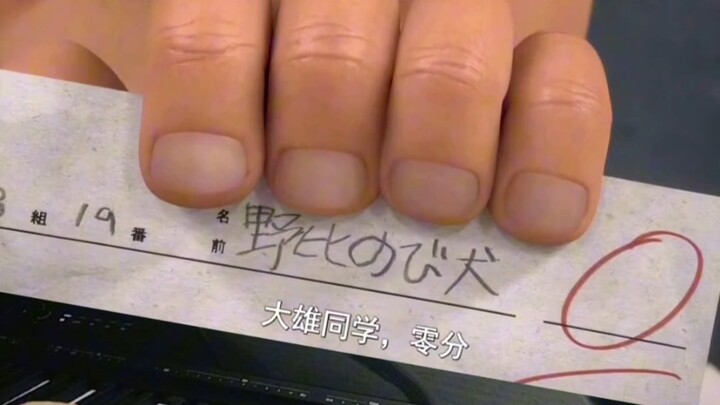 組 19番 名前 野比のび犬 0
大雄同学，零分